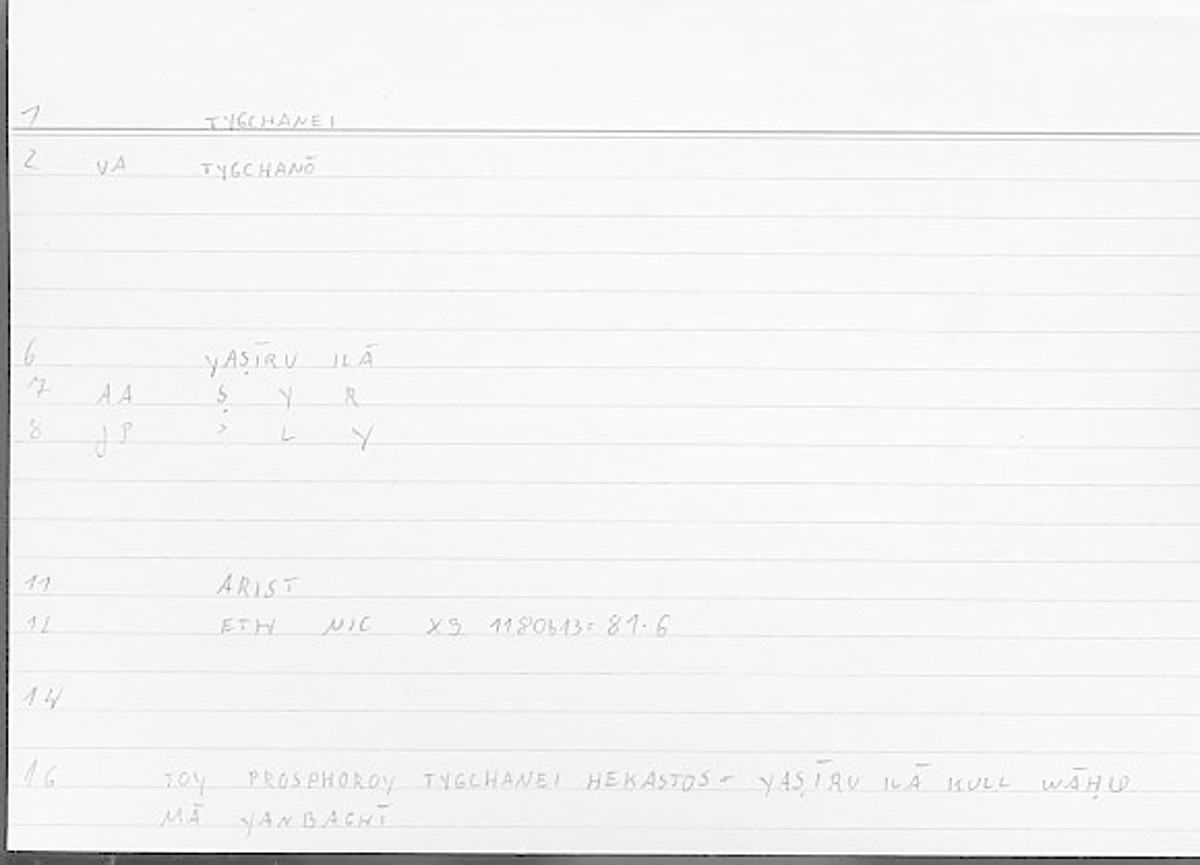 1 TYGCHANEI
2 VA TYGCHANŌ
6 YAṢĪRU ILĀ
7 AA Ṣ Y R
8 JP ʾ L Y
11 ARIST
12 ETH NIC X9 1180b13= 81.6
14
16 TOY PROSPHOROY TYGCHANEI HEKASTOS = YAṢĪRU ILĀ KULL WĀḤID
MĀ YANBAGHĪ